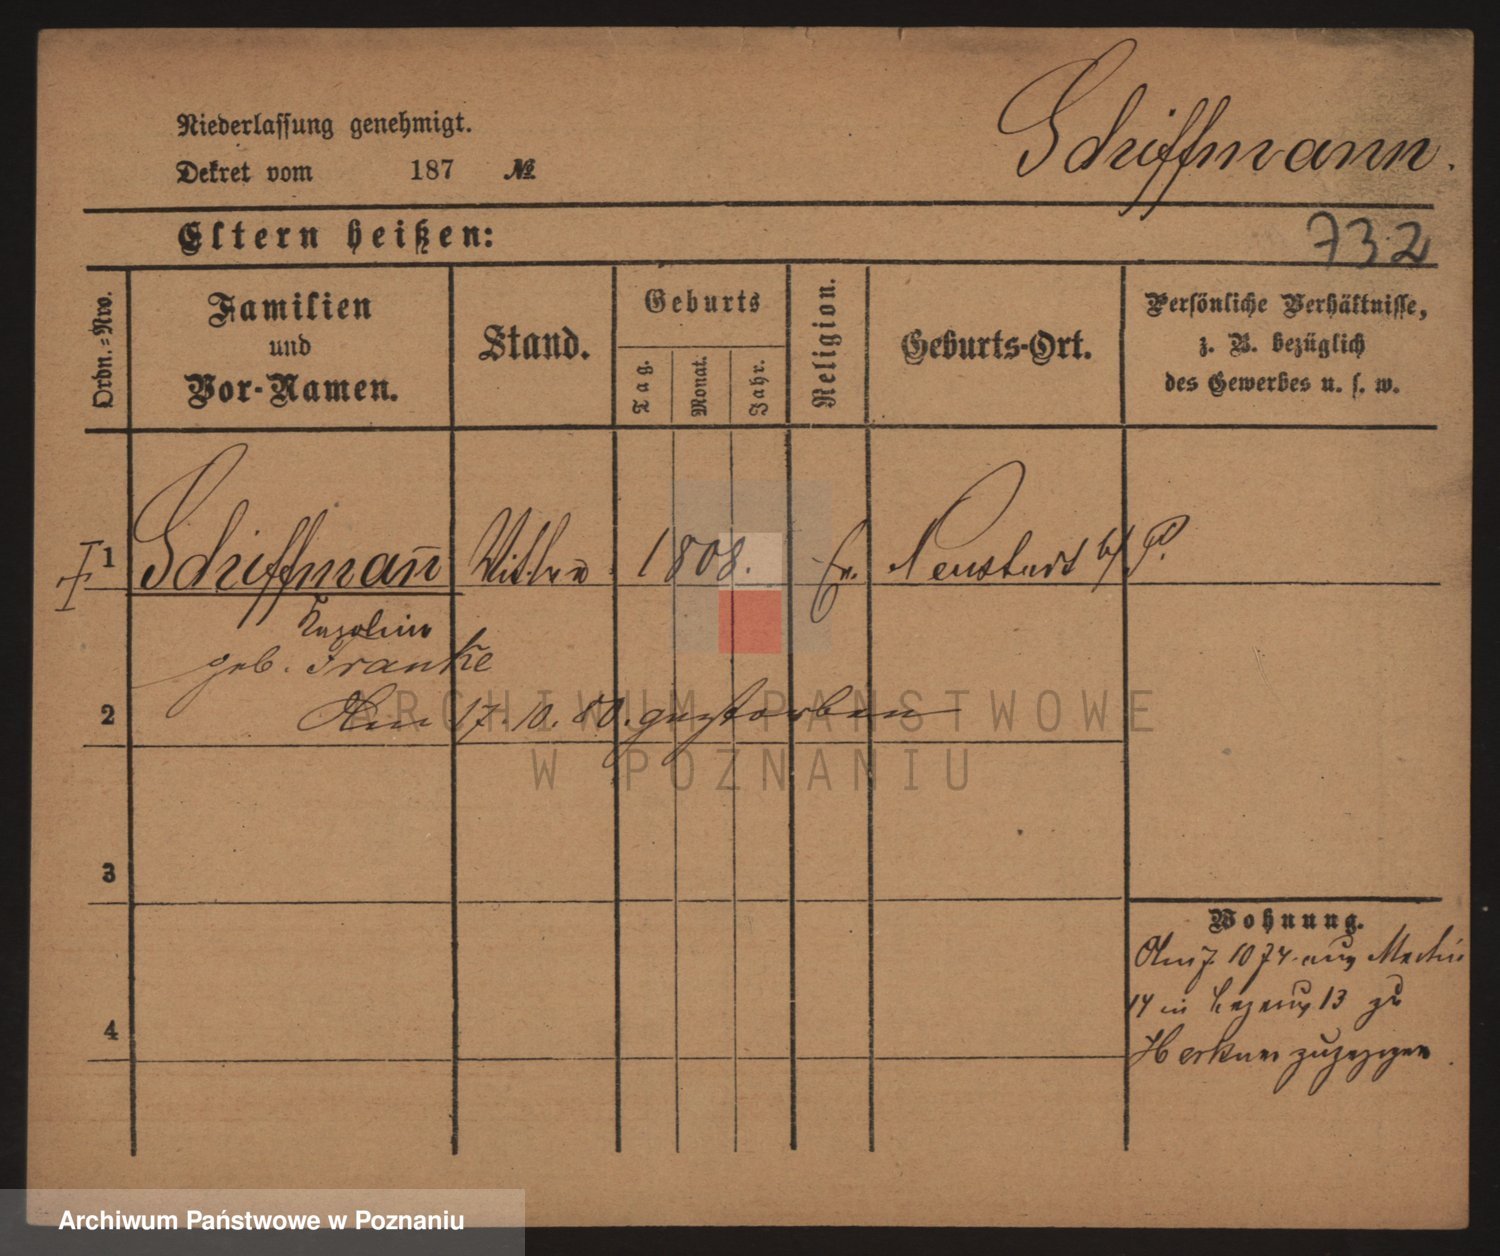 Schiffmann.
Niederlassung genehmigt.
Dekret vom 187 №
Eltern heißen:
732
Ordn.=Nro.
Familien
und
Vor-Namen.
Stand.
Geburts
Tag.
Monat.
Jahr.
Religion.
Geburts-Ort.
Persönliche Verhältnisse,
z. B. bezüglich
des Gewerbes u. s. w.
1 Schiffman̄ 1808. Ev. Neustadt b/ P.
Karoline
geb. Franke
2 Am 17.10.80. gestorben
3
Wohnung.
Am 7. 10 74 aus Martin
14 in 13 zu
4
zugezogen
ARCHIWUM PAŃSTWOWE
W POZNANIU
Archiwum Państwowe w Poznaniu